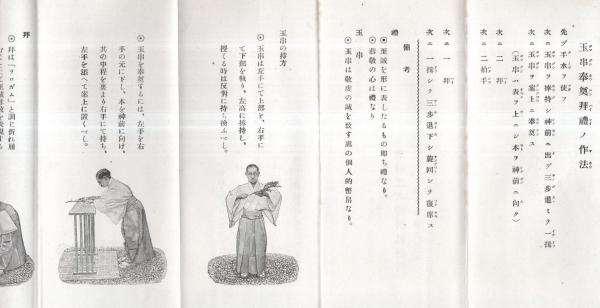 玉串奉奠拜禮ノ作法
先ヅ手水ヲ使フ
次ニ玉串ヲ捧持シ神前ニ出デ三步進ミテ一揖
次ニ玉串ヲ案上ニ奉奠ス
(玉串ハ表ヲ上ニシ本ヲ神前ニ向ク)
次ニ 二拜
次ニ 二拍手
次ニ 一拜
次ニ 一揖シテ三步退下シ旋回シテ復席ス
備考
禮
◉至誠を形に表したるもの卽ち禮なり。
◉恭敬の心は禮なり
玉串
◉玉串は敬虔の誠を致す處の個人的幣帛なり。
玉串の持方
◉玉串は左手にて上部を、右手に
て下部を執り、左高に捧持し、
授くる時は反對に持ち換ふべし。
◉玉串を奉奠するには、左手を右
手の元に下し、本を神前に向け、
其の中程を裏より右手にて持ち、
左手を添へて案上に置くべし。
拜
◉拜は「ヲロガム」と訓に折れ屈